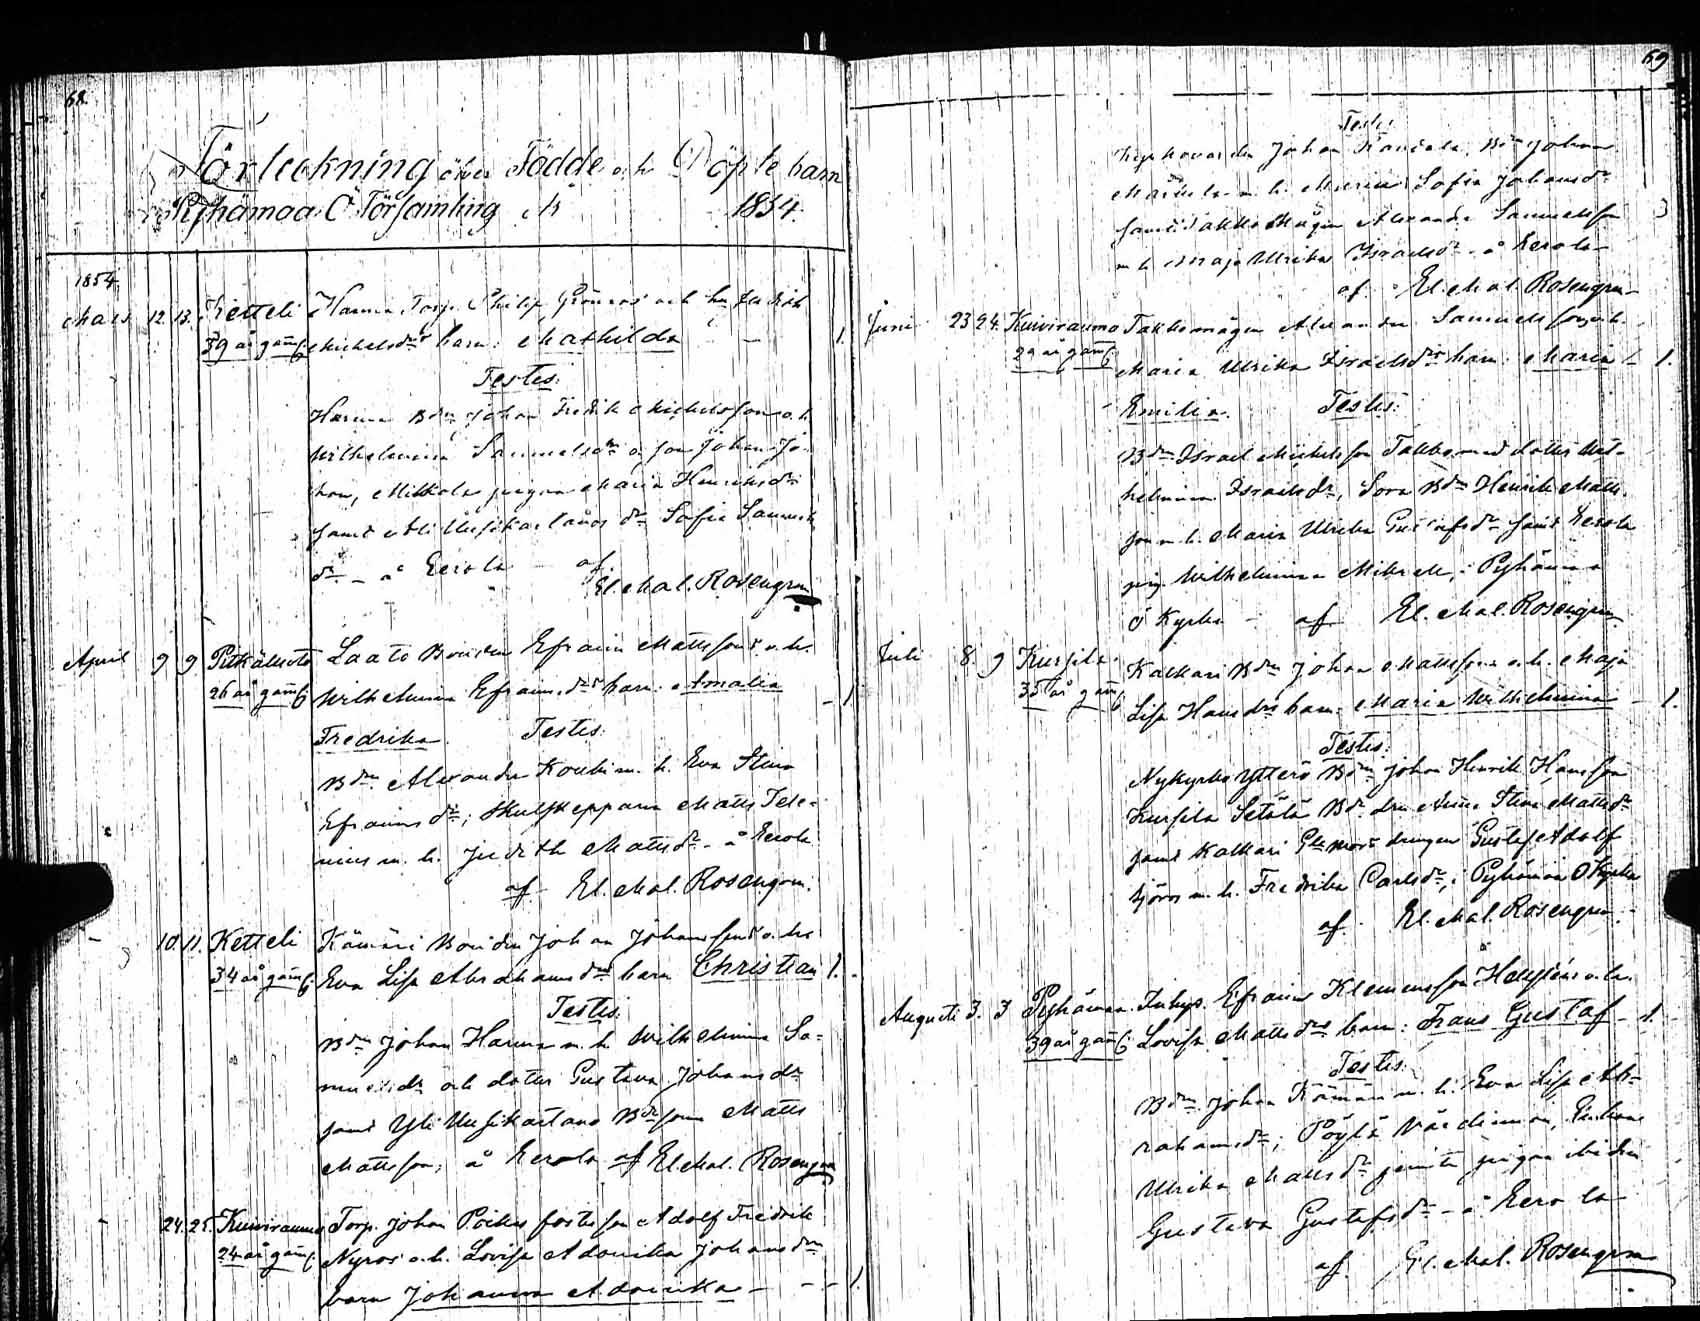 68.
Förteckning öfver Födde och Döpte barn
Pyhämaa Ö Församling År 1854.
1854.
Mars 12. 13. Ketteli Harma Torp. Philip Grönroos och h. Judith
39 år gam. Michelsdrs barn: Mathilda — 1.
Testes:
Harma Bdn Johan Fredrik Michelsson o. h.
Wilhelmina Samuelsdr o. son Johan Jo-
han, Mikkola pigan Maria Henriksdr
samt Yli Uusikartano dr Sofia Samuels
dr — å Eerola — af
El. Mal. Rosengren
April 9 9 Pitkäluoto Laato Bonden Efraim Mattssons o. h.
26 år gam. Wilhelmina Efraimsdrs barn: Amalia — 1
Fredrika. Testes:
Bdn Alexander Kouki m. h. Eva Stina
Efraimsdr; Skutskepparn Matts Tele-
nius m. h. Judith Mattsdr — å Eerola
af El. Mal. Rosengren.
10. 11. Ketteli Kämäri Bonden Johan Johanssons o. h.
34 år gam. Eva Lisa Abrahamsdrs barn Christian 1.
Testes:
Bdn Johan Harma m. h. Wilhelmina Sa-
muelsdr och dotter Gustava Johansdr
samt Yli Uusikartano Bdeson Matts
Mattsson; å Eerola af El. Mal. Rosengren
24. 25. Kuivirauma Torp. Johan Poikus fosterson Adolf Fredrik
24 år gam. Nyroos o. h. Lovisa Adonika Johansdrs
barn Johanna Adonika — 1.
69
Testes
Johan Bdn Johan
m. h. Maria Sofia Johansdr
samt Takko Mågen Alexander Samuelsson
m. h. Maja Ulrika Israelsdr — å Eerola
af El. Mal. Rosengren
Juni 23 24. Kuivirauma Takko mågen Alexander Samuelssons o. h.
29 år gam. Maria Ulrika Israelsdrs barn: Maria 1.
Emilia. Testes:
Bdn Israel Michelsson Takko med dotter Wil-
helmina Israelsdr, Sora Bdn Henrik Matts-
son m. h. Maria Ulrika Gustafsdr samt Eerola
pig. Wilhelmina i Pyhämaa
Ö Kyrka — af El. Mal. Rosengren
Juli 8. 9 Kursila Kalkari Bdn Johan Mattssons o. h. Maja
35 år gam. Lisa Hansdrs barn: Maria Wilhelmina — 1.
Testes:
Nykyrko Ytterö Bdn Johan Henrik Hansson
Kursila Setälä Bde. dr. Anna Stina Mattsdr
samt Kalkari drengen Gustaf Adolf
Sjöros m. h. Fredrika Carlsdr, i Pyhämaa Ö Kyrka
af El. Mal. Rosengren
Augusti 3. 3 Pyhämaa Inhys. Efraim Klemensson o. h.
39 år gam. Lovisa Mattsdrs barn: Frans Gustaf — 1.
Testes:
Bdn Johan Kämäri m. h. Eva Lisa Ab-
rahamsdr; Pöylä värdinnan, Enkan
Ulrika Mattsdr jemte pigan ibidem
Gustava Gustafsdr — å Eerola
af El. Mal. Rosengren